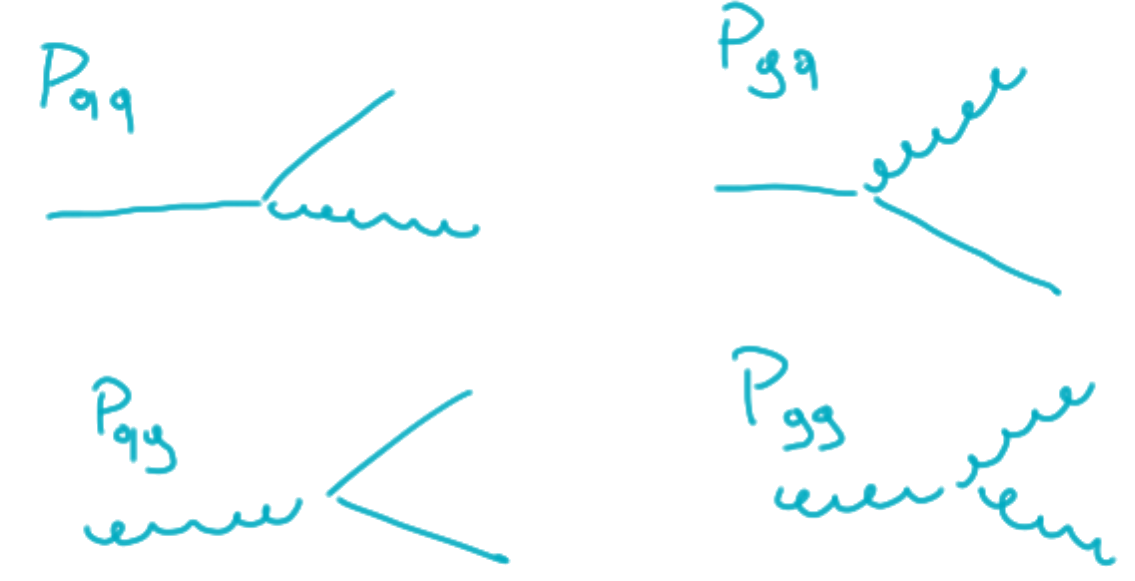 Pqq
Pgq
Pqg
Pgg